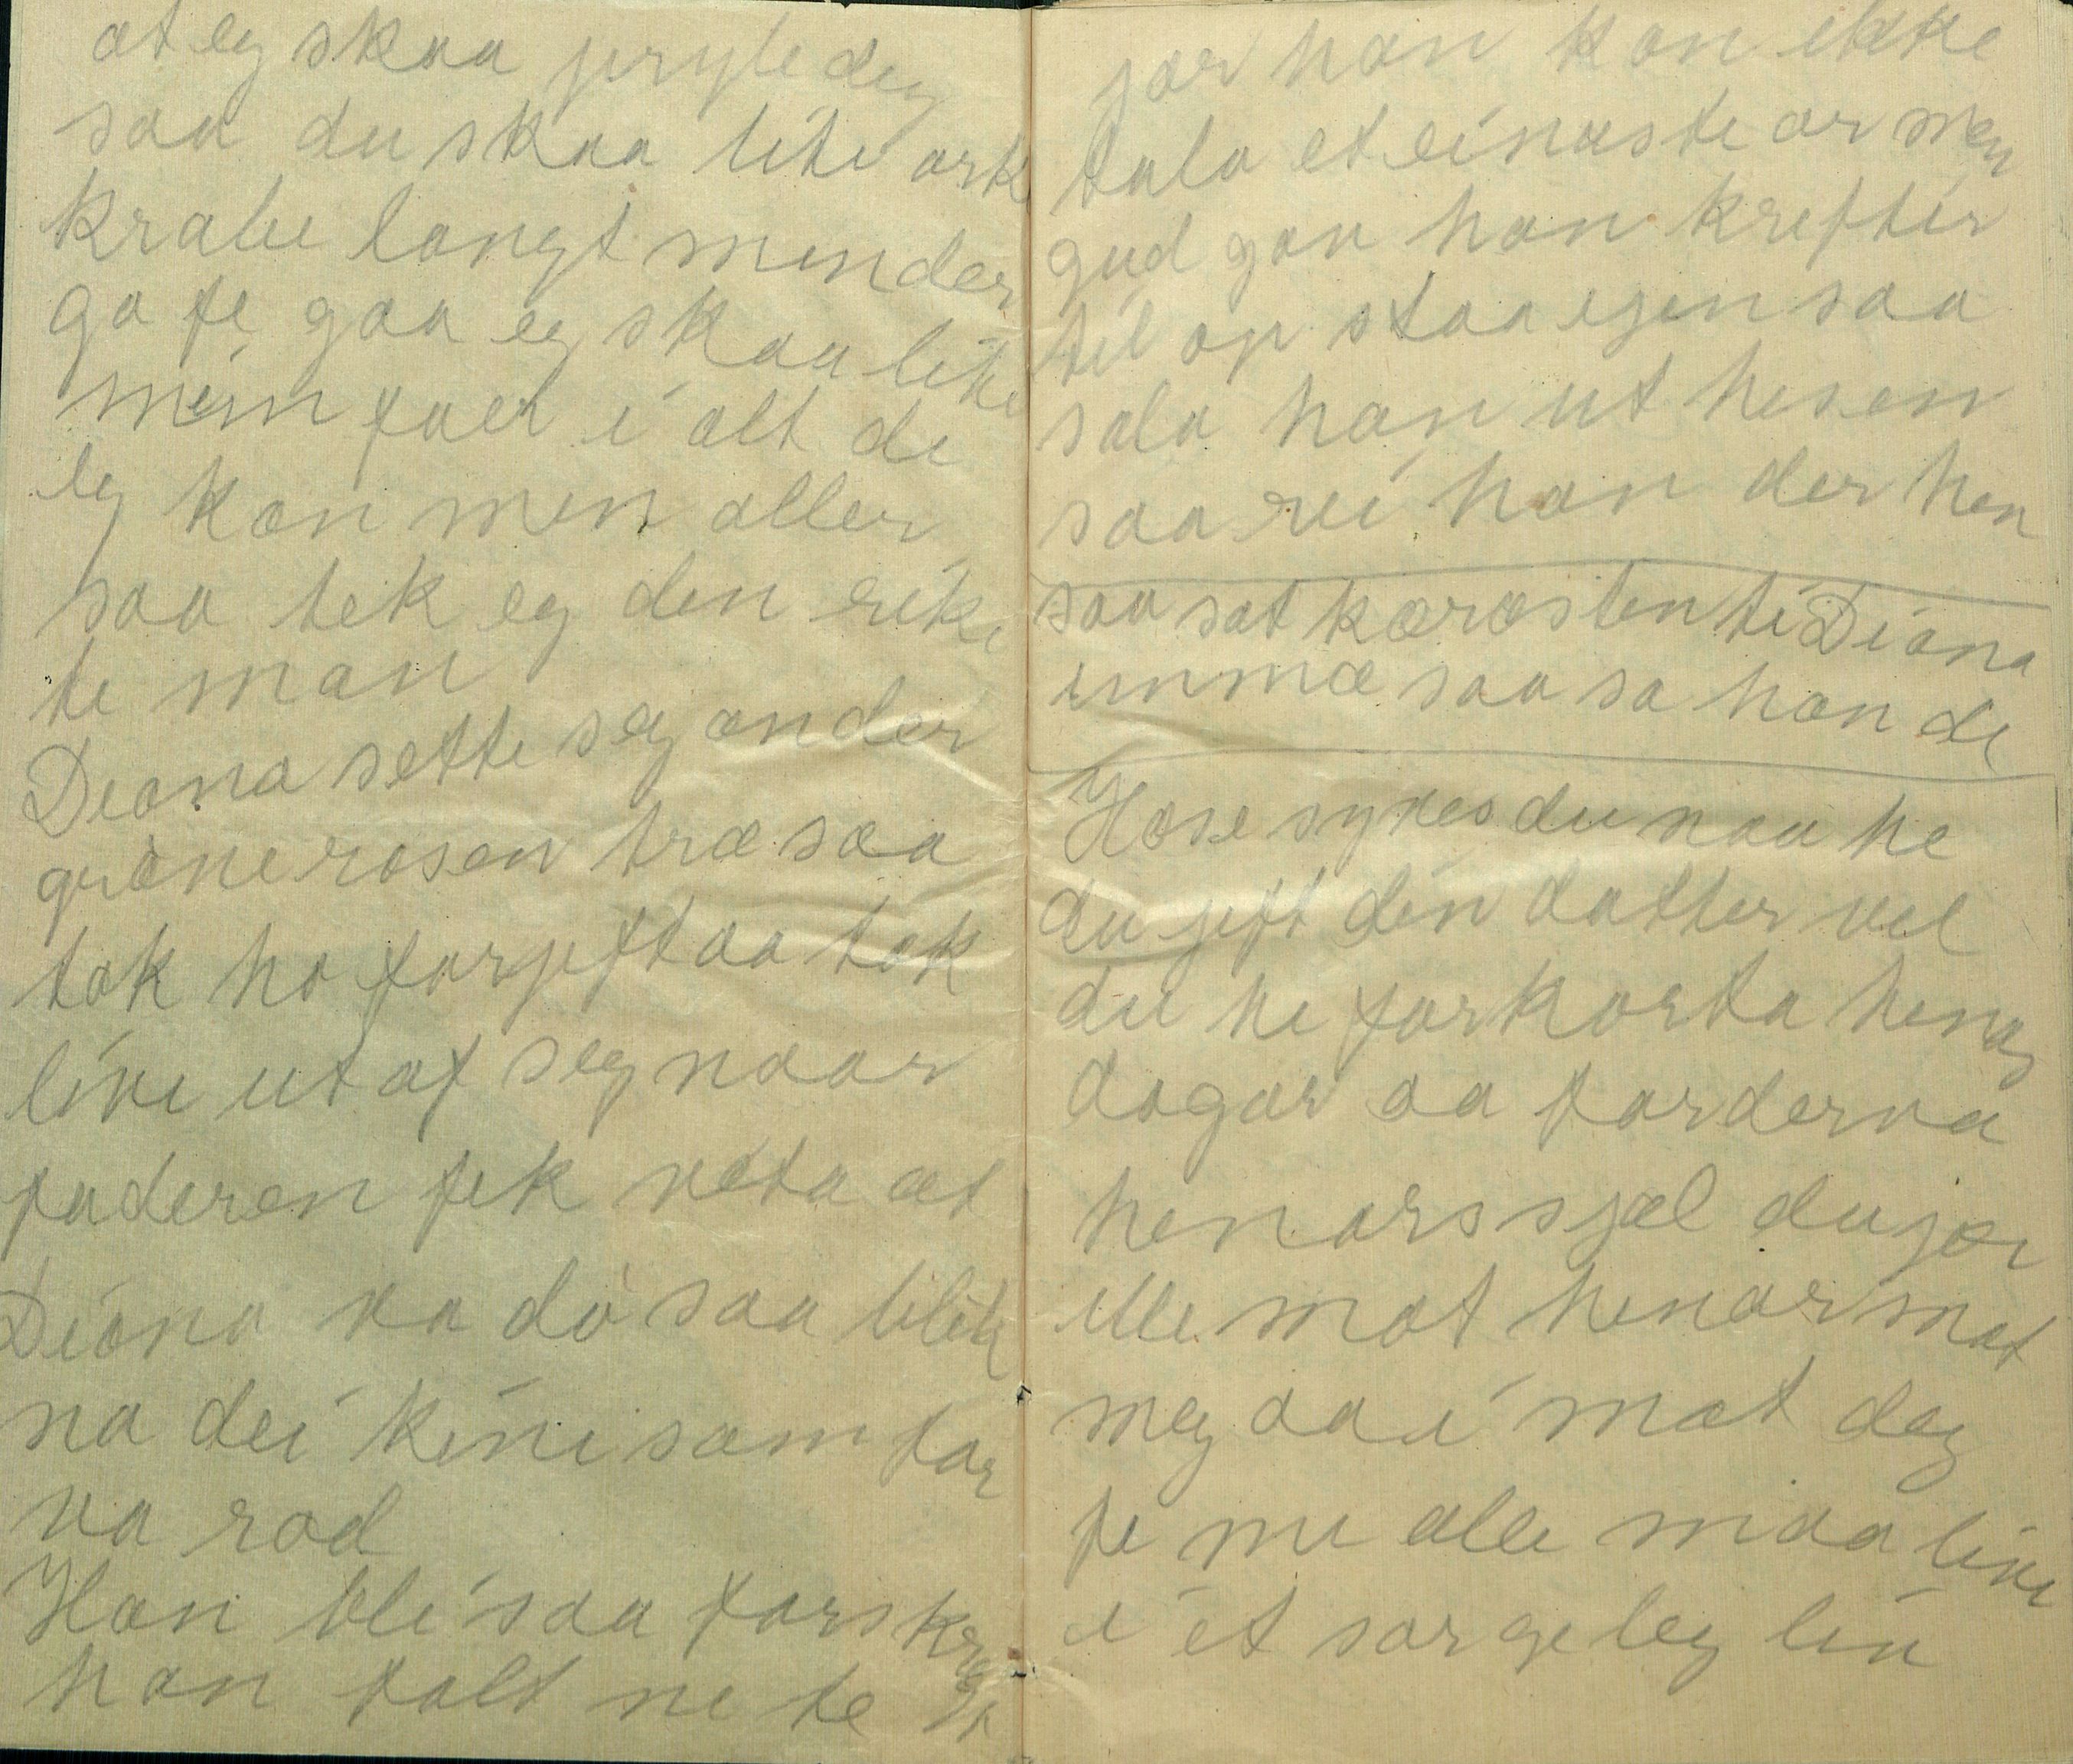 at eg skaa pryle deg
saa du skaa lite ork
krabe langt minder
ga fe gaa eg skaa like
min faer i alt de
eg kan men aller
saa tek eg den rike
te man
Diana sette seg onder
grøne rosen træ saa
tok ho forjift aa tok
live ut af seg naar
faderen fek veta at
Diana va dø saa blik
na dei kini som for
va rod
Han blei saa forskr
han falt ne te
jor han kan ikke
tala et einaste or men
gud gav han krefter
til op staa igen saa
sala han ut hesen
saa rei han der hen
saa sat kæresten te Diana
imme saa sa han de
Hose synes du naa he
du jift din datter vel
du he forkorta henas
dogar aa forderva
henars sjæl du jor
ille mot henar mot
meg aa i mot deg
fe me alle maa live
i et sorgeleg liv